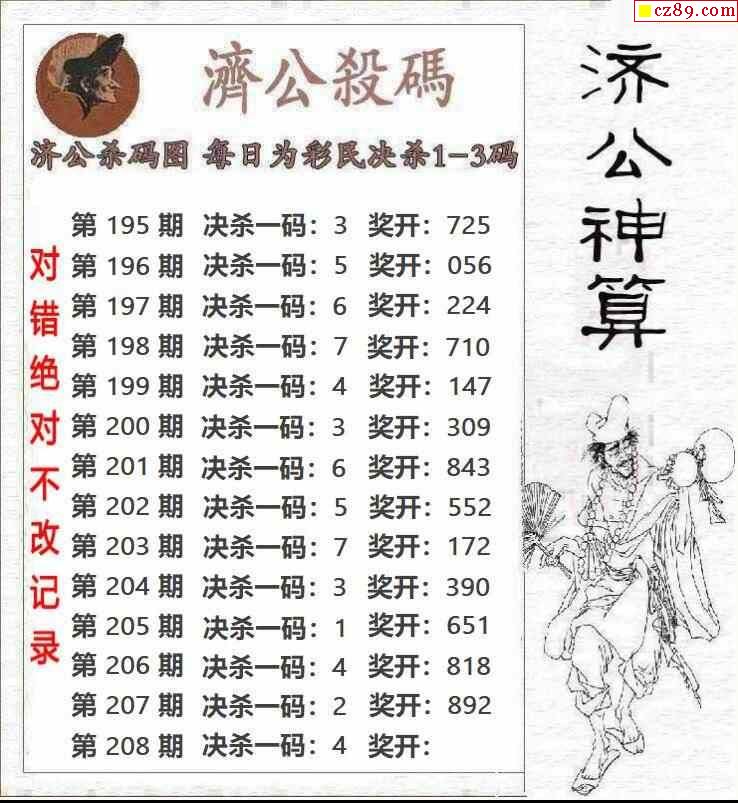 cz89.com
濟公殺碼
济公杀码图 每日为彩民决杀1-3码
第 195 期 决杀一码：3 奖开：725
第 196 期 决杀一码：5 奖开：056
第 197 期 决杀一码：6 奖开：224
第 198 期 决杀一码：7 奖开：710
第 199 期 决杀一码：4 奖开：147
第 200 期 决杀一码：3 奖开：309
第 201 期 决杀一码：6 奖开：843
第 202 期 决杀一码：5 奖开：552
第 203 期 决杀一码：7 奖开：172
第 204 期 决杀一码：3 奖开：390
第 205 期 决杀一码：1 奖开：651
第 206 期 决杀一码：4 奖开：818
第 207 期 决杀一码：2 奖开：892
第 208 期 决杀一码：4 奖开：
对错绝对不改记录
济公神算